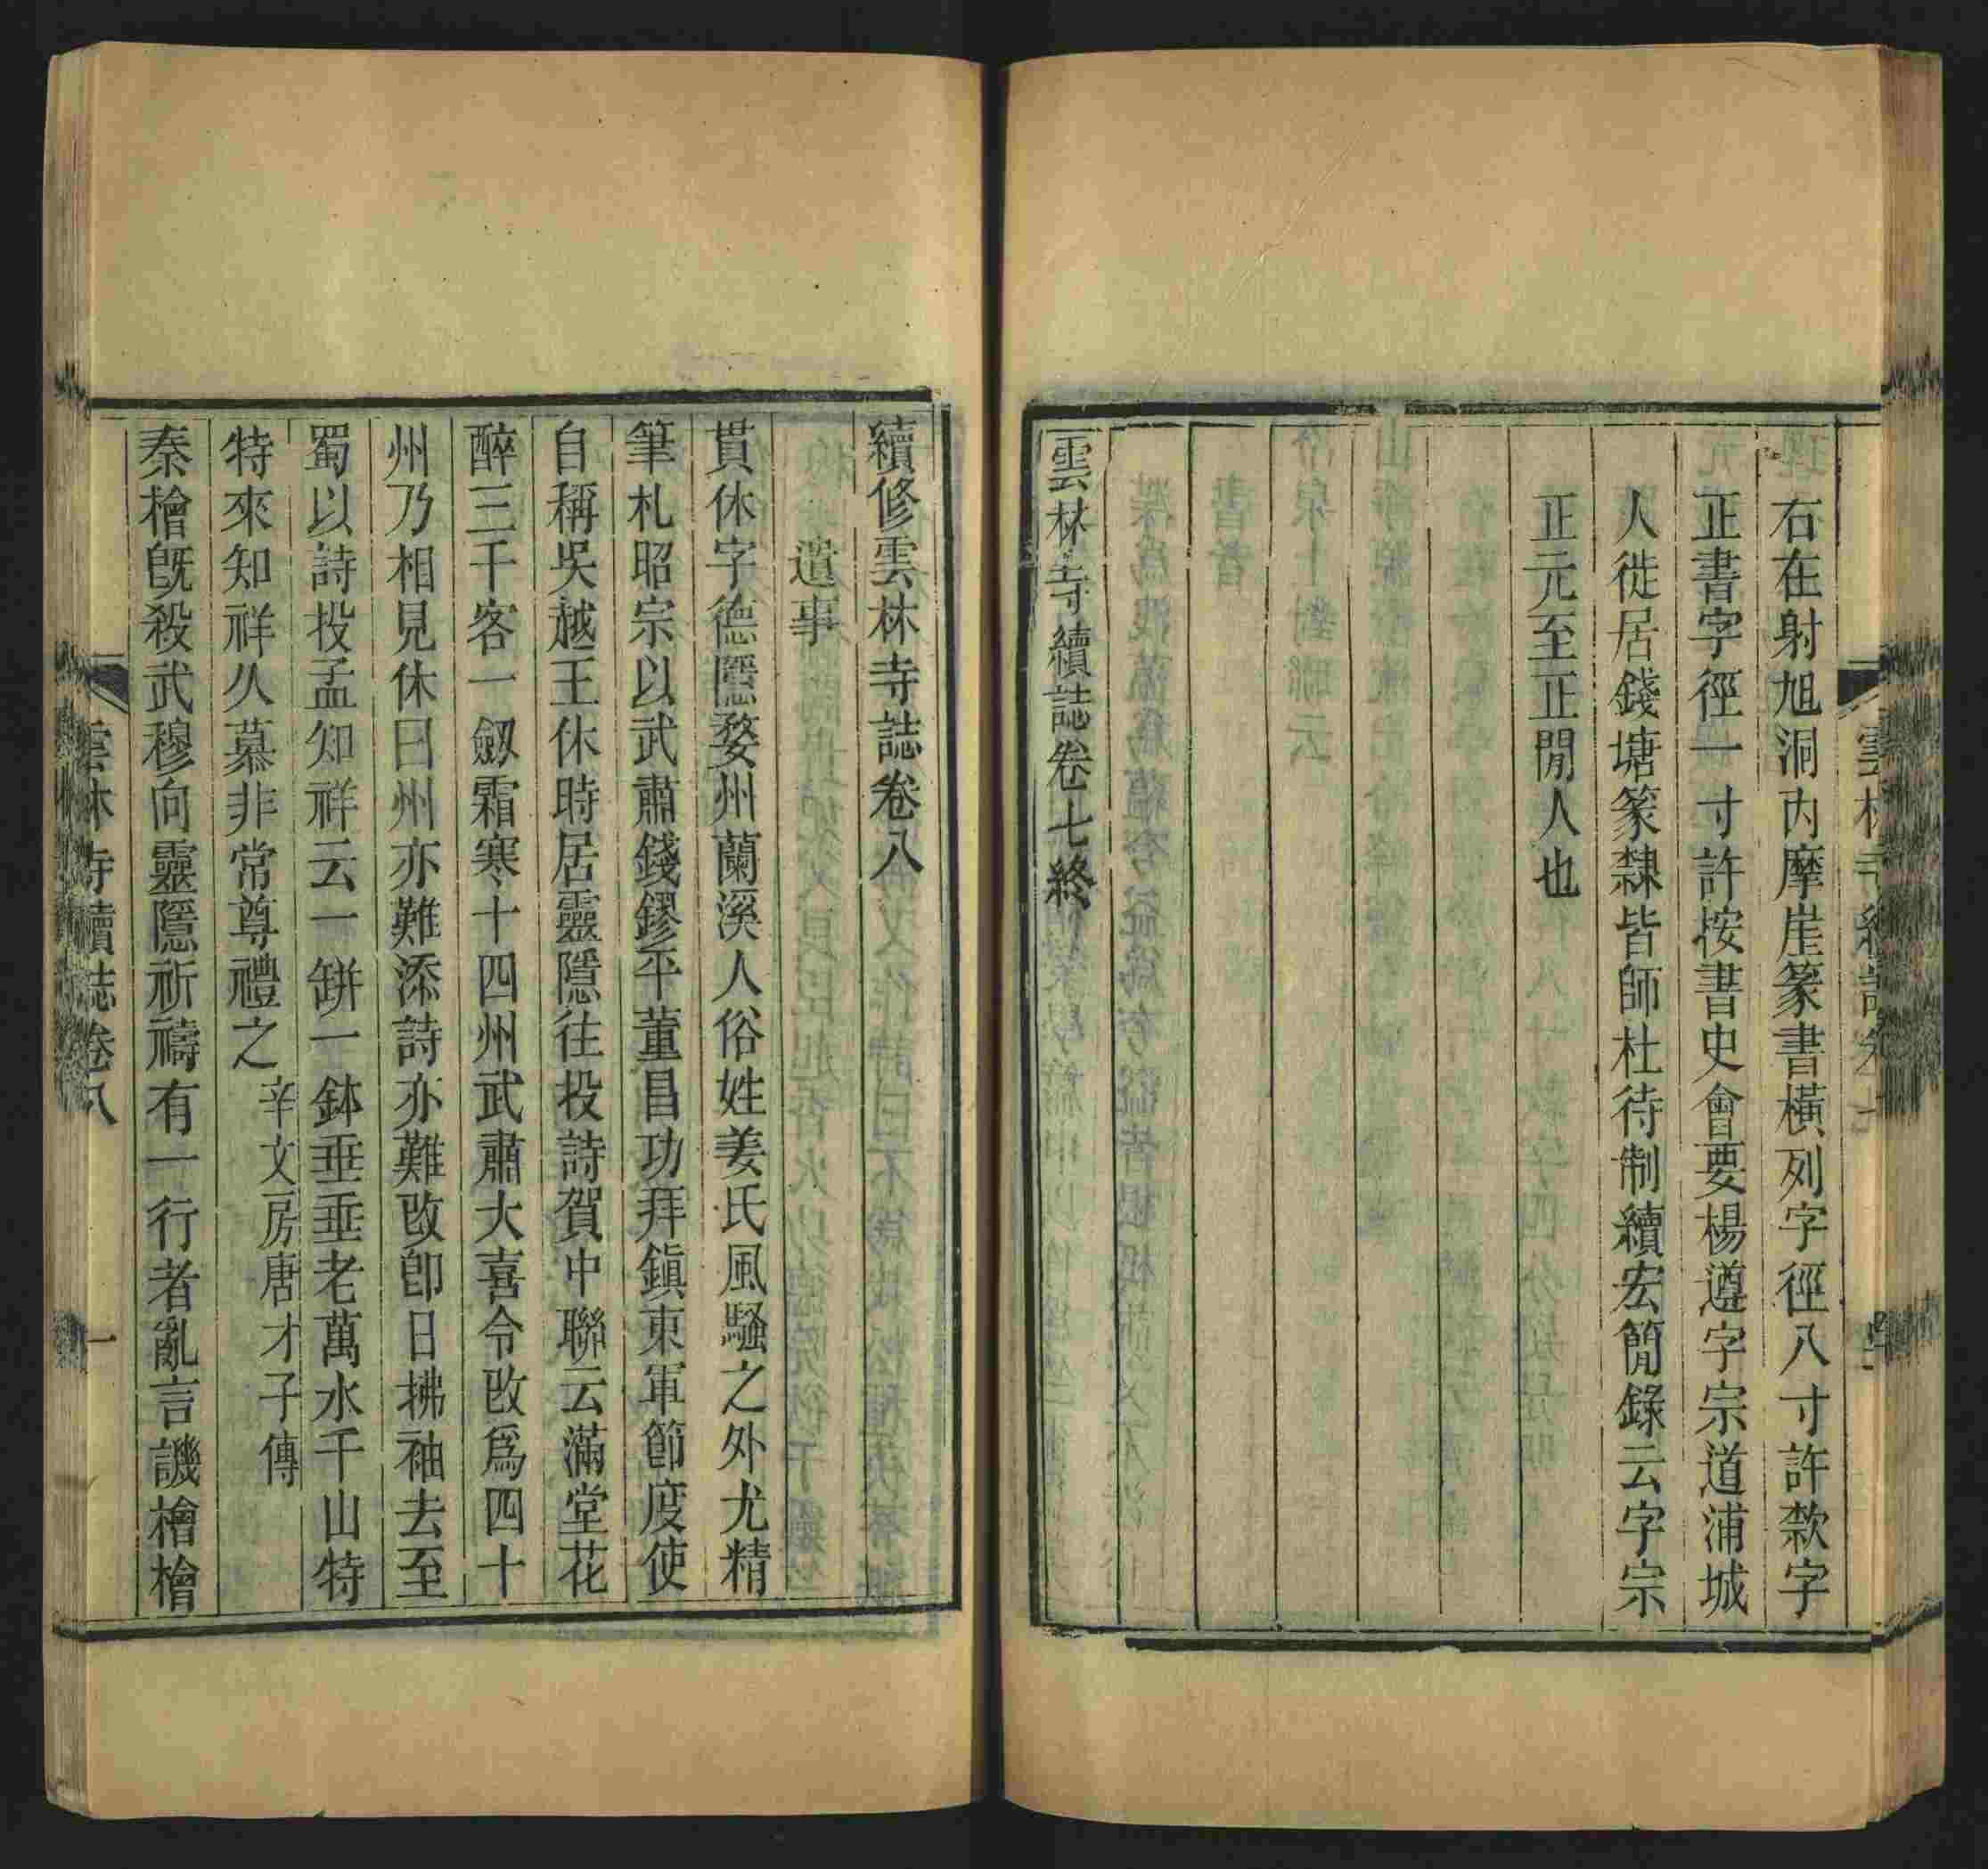 右在射旭洞內摩崖篆書橫列字徑八寸許欵字
正書字徑一寸許按書史會要楊遵字宗道浦城
人徙居錢塘篆隸皆師杜待制續宏簡錄云字宗
正元至正閒人也
雲林寺續誌卷七終
續修雲林寺誌卷八
遺事
貫休字德隱婺州蘭溪人俗姓姜氏風騷之外尤精
筆札昭宗以武肅錢鏐平董昌功拜鎮東軍節度使
自稱吳越王休時居靈隱往投詩賀中聯云滿堂花
醉三千客一劔霜寒十四州武肅大喜令改爲四十
州乃相見休曰州亦難添詩亦難改卽日拂袖去至
蜀以詩投孟知祥云一缾一鉢垂垂老萬水千山特
特來知祥久慕非常尊禮之 辛文房唐才子傳
秦檜旣殺武穆向靈隱祈禱有一行者亂言譏檜檜
雲林寺續誌卷八
一